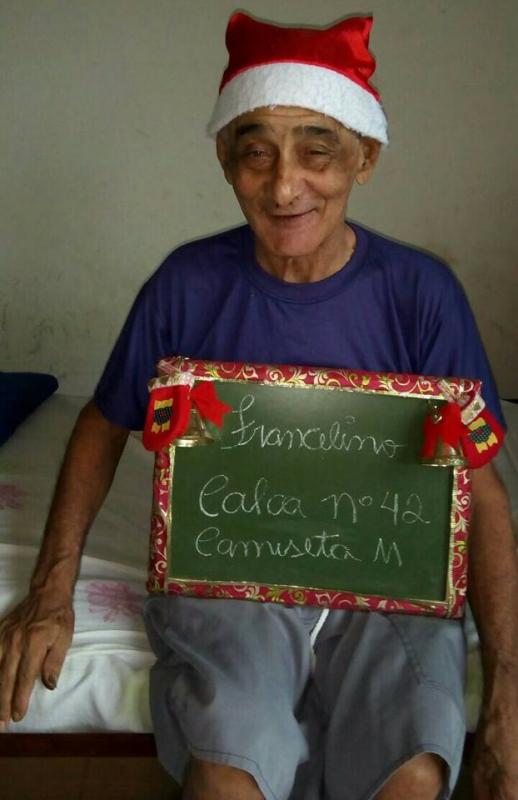 Francelino
Calça nº 42
Camiseta M